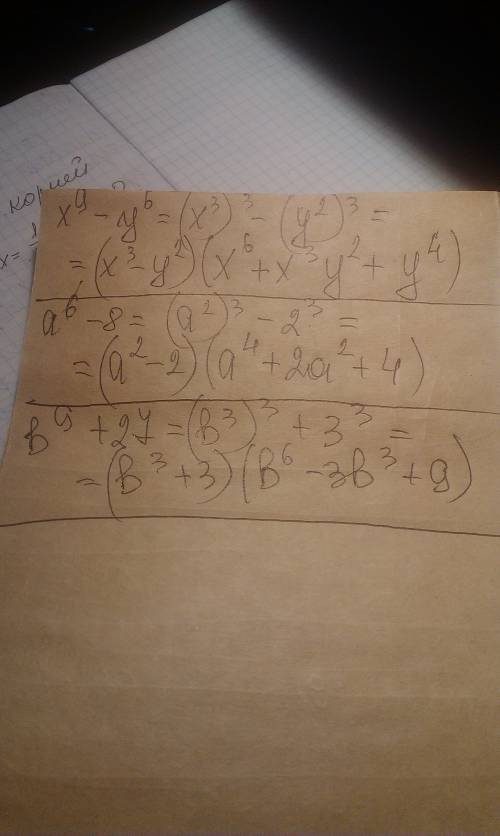 корней
x=
x⁹ - y⁶ = (x³)³ - (y²)³ =
= (x³ - y²)(x⁶ + x³y² + y⁴)
a⁶ - 8 = (a²)³ - 2³ =
= (a² - 2)(a⁴ + 2a² + 4)
в⁹ + 27 = (в³)³ + 3³ =
= (в³ + 3)(в⁶ - 3в³ + 9)